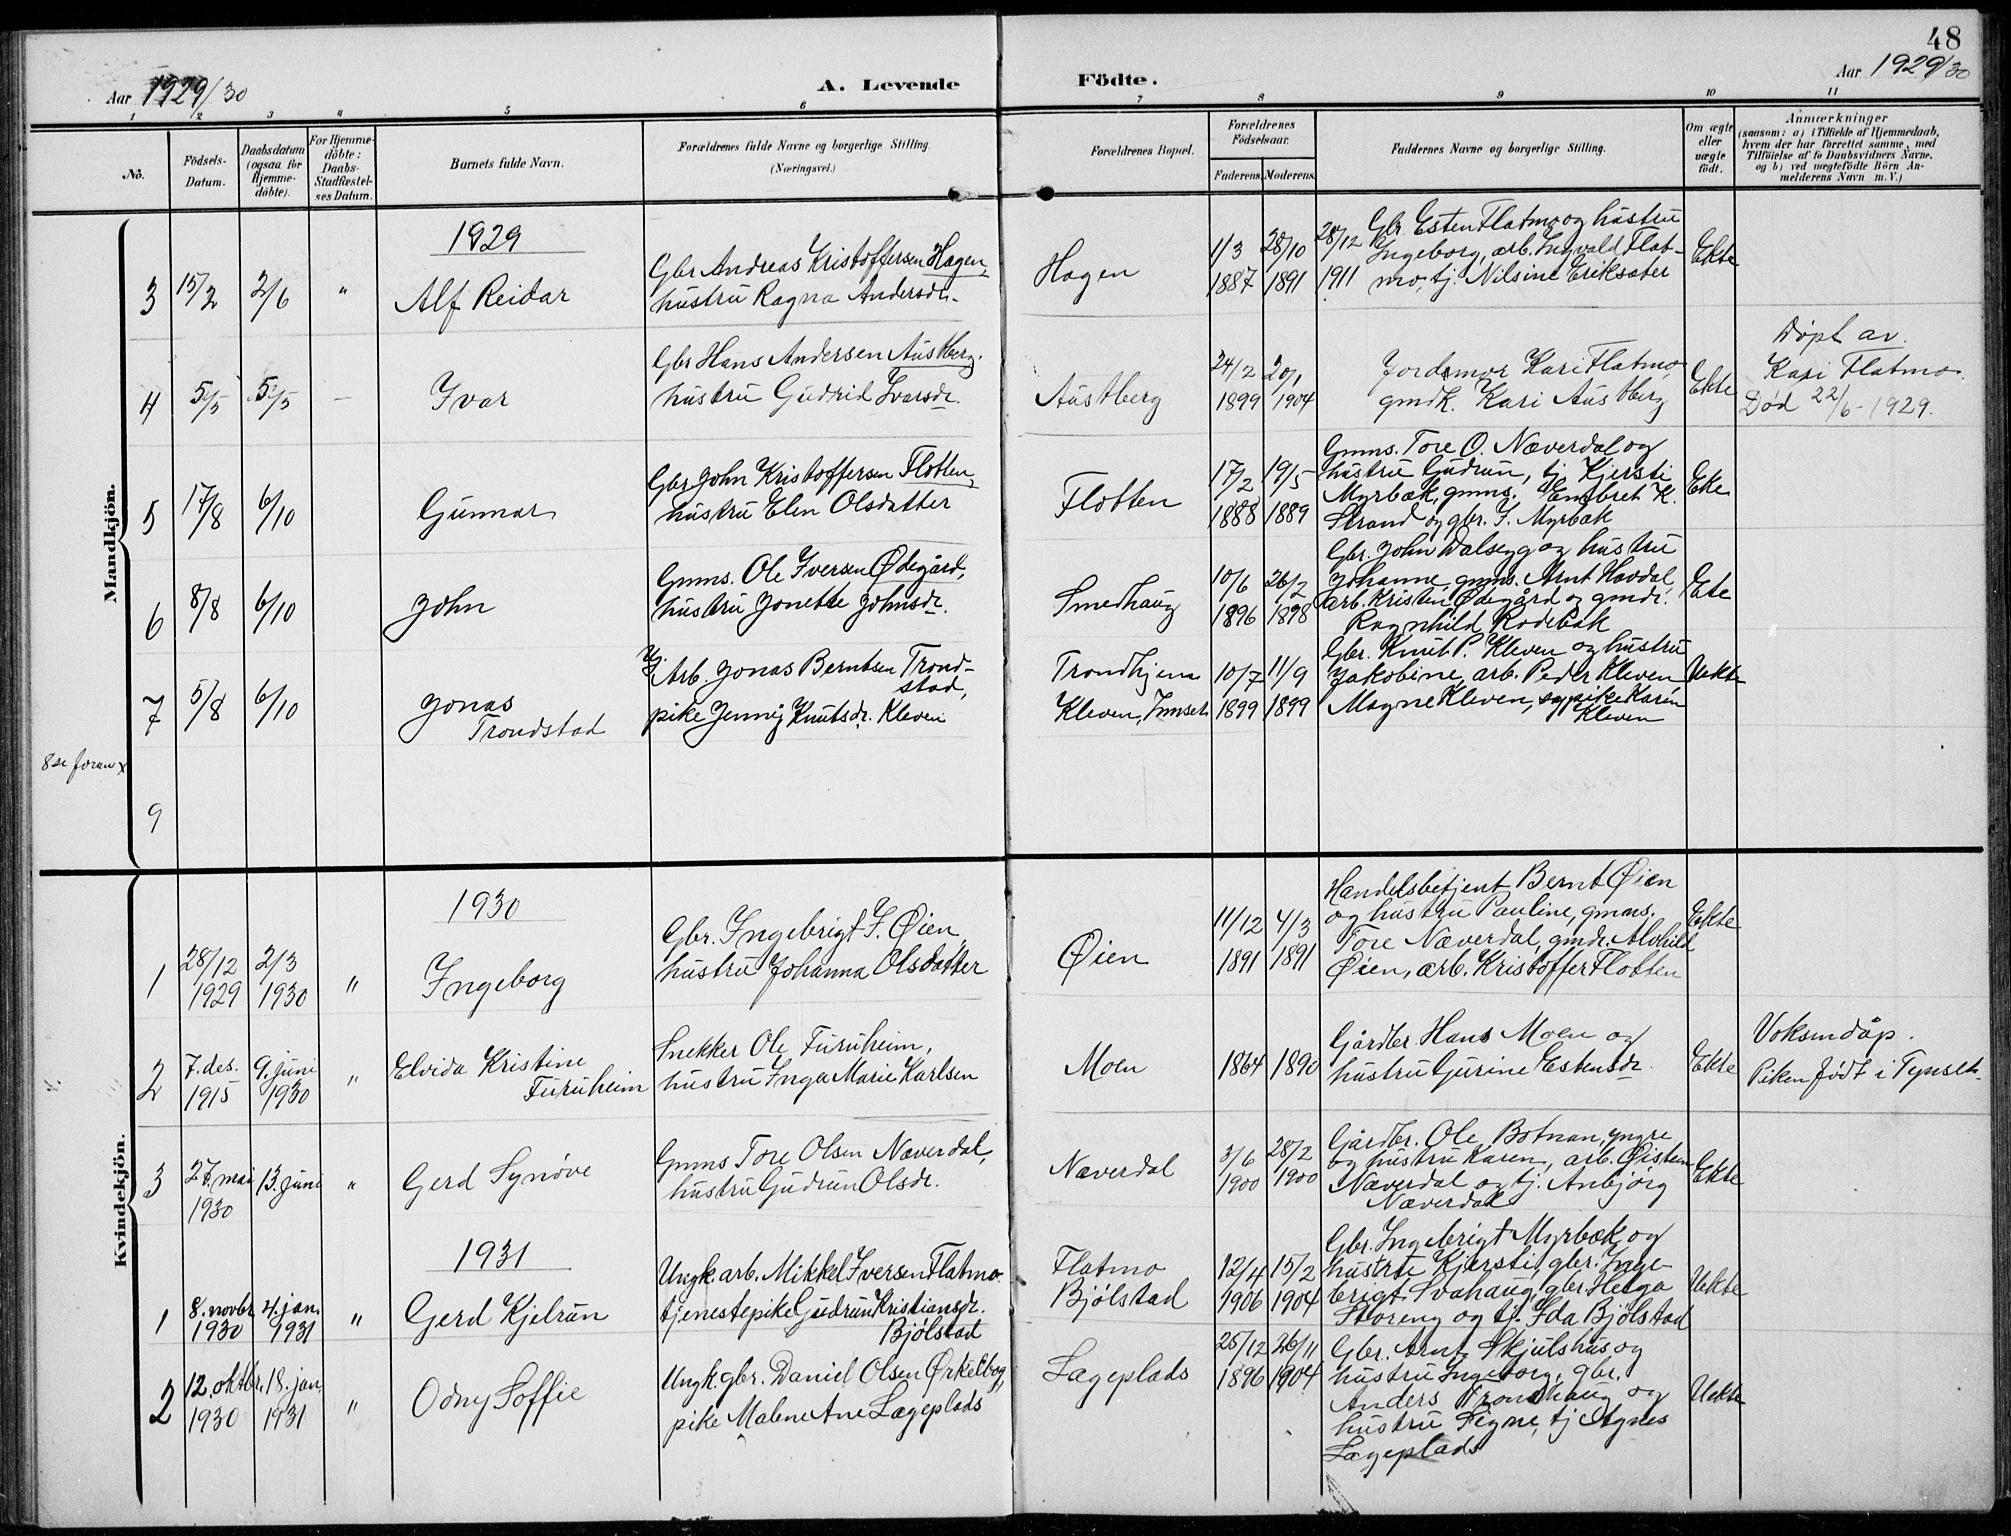 48
Aar 1929/30
A. Levende
Födte.
Aar 1929/30
1 2 3 4 5 6 7 8 9 10 11
No.
Födsels-
Datum.
Daabsdatum
(ogsaa for
Hjemme-
döbte).
For Hjemme-
döbte:
Daabs-
Stadfæstel-
ses Datum.
Barnets fulde Navn.
Forældrenes fulde Navne og borgerlige Stilling.
(Næringsvei.)
Forældrenes Bopæl.
Forældrenes
Födselsaar.
Faderens.
Moderens.
Faddernes Navne og borgerlige Stilling.
Om ægte
eller
uægte
födt.
Anmærkninger
(saasom: a) i Tilfælde af Hjemmedaab,
hvem der har forrettet samme, med
Tilföielse af to Daabsvidners Navne,
og b) ved uægtefödte Börn An-
melderens Navn m. V.)
Mandkjön.
1929
3
15/2
2/6
"
Alf Reidar
Gbr Andreas Kristoffersen Hagen,
hustru Ragna Andersdr.
Hagen
1/3
1887
28/10
1891
28/12
1911
Gbr. Esten Flatmo og hustru
Ingeborg, arb. Ingvald Flat-
mo, tj. Nilsine Eriksater
Ekte
4
5/5
5/5
Ivar
Gbr Hans Andersen Austberg.
hustru Gudrid Ivarsdr.
Austberg
24/2
1899
20/1
1904
Jordmor Kari Flatmo
gmdk. Kari Austberg
Ekte
Döpt av
Kari Flatmo.
Död 22/6-1929.
5
17/8
6/10
Gunnar
Gbr John Kristoffersen Flotten,
hustru Elen Olsdatter
Flotten
17/2
1888
19/5
1889
Gmms. Tore O. Næverdal og
hustru Gudrun, tj Kjersti
Myrbæk, gmms. Embret K.
Strand og gbr. I. Myrbæk
Ekte
6
8/8
6/10
John
Gmms. Ole Iversen Ødegård,
hustru Jonette Johnsdr.
Smedhaug
10/6
1896
26/2
1898
Gbr. John Dalseg og hustru
Johanne, gmms. Arnt Havdal
arb. Kristen Ødegård og gmdr.
Ragnhild Rodebak
Ekte
7
5/8
6/10
Jonas
Trondstad
Arb. Jonas Berntsen Trond-
stad,
pike Jenny Knutsdr. Kleven
Trondhjem
Kleven, Innset
10/7
1899
11/9
1899
Gbr. Knut P. Kleven og hustru
Jakobine, arb. Peder Kleven
Magne Kleven, sypike Karen
Kleven
Uekte
8 se foran x
9
Kvindekjön.
1930
1
28/12
1929
2/3
1930
"
Ingeborg
Gbr. Ingebrigt I. Øien,
hustru Johanna Olsdatter
Øien
11/12
1891
4/3
1891
Handelsbetjent Bernt Øien
og hustru Pauline, gmms.
Tore Næverdal, gmdr. Alvhild
Øien, arb. Kristoffer Flotten
Ekte
2
7. des.
1915
9. juni
1930
"
Elvida Kristine
Furuheim
Snekker Ole Furuheim,
hustru Inga Marie Karlsen
Moen
1864
1890
Gårdbr Hans Moen og
hustru Gurine Estensdr.
Ekte
Voksendåp.
Piken født i Tynset.
3
27. mai
1930
13. juni
"
Gerd Synøve
Gmms Tore Olsen Næverdal,
hustru Gudrun Olsdr.
Næverdal
3/6
1900
28/2
1900
Gårdbr. Ole Botnan, yngre
og hustru Karen, arb. Øistein
Næverdal og tj. Anbjørg
Næverdal
Ekte
1931
1
8. novbr.
1930
4. jan.
1931
"
Gerd Kjelrun
Ungk. arb. Mikkel Iversen Flatmo
tjenestepike Gudrun Kristiansdr.
Bjølstad
Flatmo
Bjølstad
12/4
1906
15/2
1904
Gbr. Ingebrigt Myrbæk og
hustru Kjersti, gbr. Inge-
brigt Svahaug, gbr. Helga
Storeng og tj. Ida Bjølstad
Uekte
2
12. oktbr.
1930
18. jan.
1931
"
Odny Soffie
Ungk. gbr. Daniel Olsen Ørkelbog
pike Malene Ane Lageplads
Lageplads
25/12
1896
26/11
1904
Gbr. Arnt Skjulshus og
hustru Ingeborg, gbr.
Anders Tronshaug og
hustru Signe, tj Agnes
Lageplads
Uekte